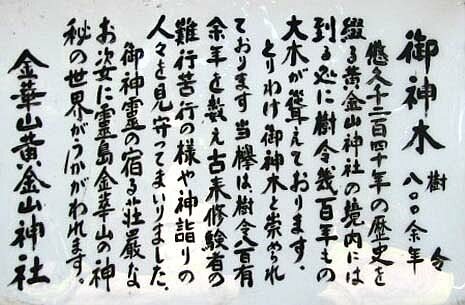 御神木
樹令
八〇〇余年
悠久千二百四十年の歴史を
綴る黄金山神社の境内には
到る処に樹令幾百年もの
大木が聳えております。
とりわけ御神木と崇められ
ております当欅は樹令八百有
余年を数え古来修験者の
難行苦行の様や神詣りの
人々を見守ってまいりました。
御神霊の宿る荘厳な
お姿に霊島金華山の神
秘の世界がうかがわれます。
金華山黄金山神社